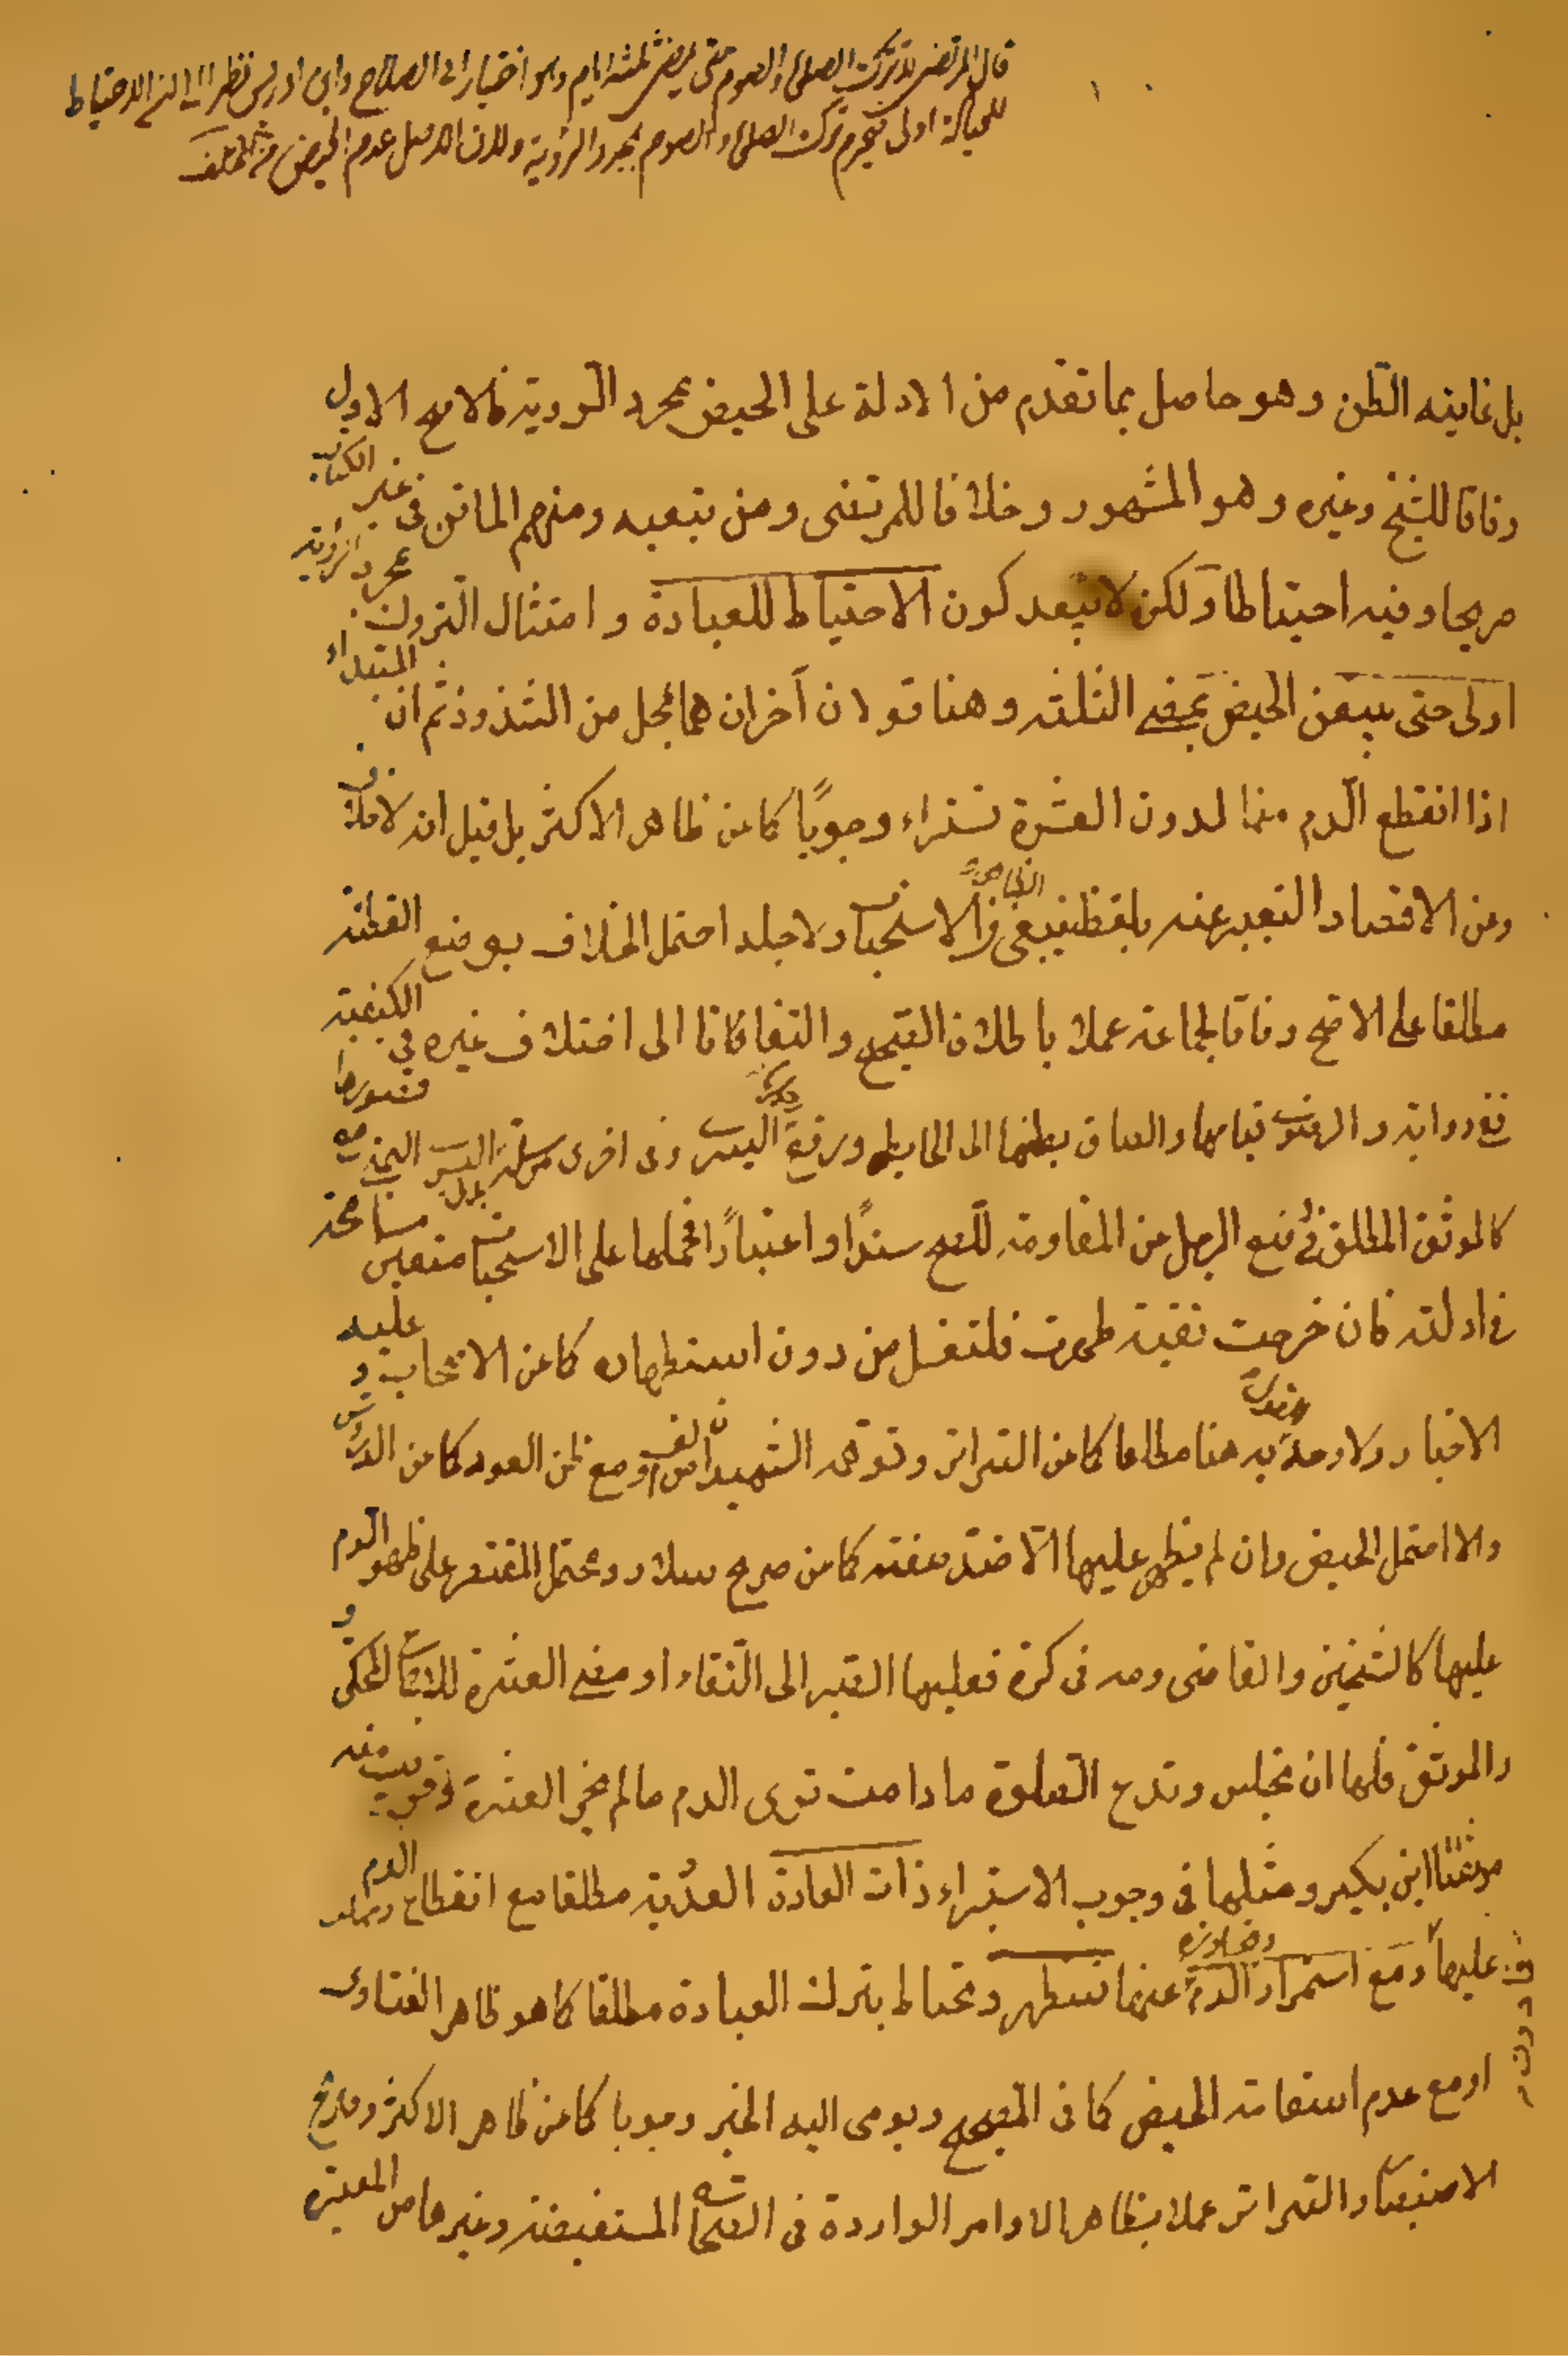 قال المرتضى لا تترك الصلوة والصوم حتى يمضى ثلثة ايام وهو اختيار ابى الصلاح وابن ادريس نظرا الى ان الاحتياط
للعبادة اولى فيحرم ترك الصلوة والصوم بمجرد الرؤية ولان الاصل عدم الحيض مختلف
بل غايته الظن وهو حاصل بما تقدم من الادلة على الحيض بمجرد الرؤية فالاصح الاول
وفاقا للشيخ وغيره وهو المشهور وخلافا للمرتضى ومن تبعه ومنهم الماتن فى غير الكتاب
صريحا وفيه احتياطا ولكن لا يبعد كون الاحتياط للعبادة وامتثال التروك بمجرد الرؤية
اولى حتى يتيقن الحيض بمضى الثلثة وهنا قولان آخران هما بمحل من الشذوذ ثم ان المبتداة
اذا انقطع الدم منها لدون العشرة تستبراء وجوبًا كما عن ظاهر الاكثر بل قيل انه لا خلاف
وعن الاقتصاد التعبير عنه بلفظ ينبغى الظاهر فى الاستحباب ولاجله احتمل الخلاف بوضع القطنة
مطلقا على الاصح وفاقا لجماعة عملا باطلاق الصحيح والتفاتا الى اختلاف غيره فى الكيفية
ففى رواية والرضوى قيامها والصاق بطنها الى الحايط ورفع اليسرى وفى اخرى مرسلة اليمنى
كالموثق المطلق فى رفع الرجل عن المقاومة للصحيح سندًا واعتبارًا فحملها على الاستحباب متعين مسامحة
فى ادلته فان خرجت نقية طهرت فلتغتسل من دون استظهار كما عن الاصحاب و عليه
الاخبار ولا وجه للقول به هنا مطلقا كما عن السرائر وتوهم الشهيد من لف او مع ظن العود كما عن الدروس
والا احتمل الحيض وان لم يظهر عليها الا ضد صفته كما عن صريح سلار ومحتمل المقتصر على ظهور الدم
عليها كالشيخين والقاضى ومد فى كره فعليها الصبر الى النقاء او مضى العشرة للاستصحاب المحكى و
والموثق فلها ان تجلس وتدع الصلوة ما دامت ترى الدم ما لم يجز العشرة وقريب منه
موثقتا ابن بكير ومثلها فى وجوب الاستبراء ذات العادة العددية مطلقا مع انقطاع الدم
عليها ومع استمرار الدم وتجاوزه عنها تستظهر وتحتاط بترك العبادة مطلقا كما هو ظاهر الفتاوى
او مع عدم استقامة الحيض كما فى الصحيح ويومى اليه الخبر وجوبا كما عن ظاهر الاكثر وصريح
الاستبصار والسرائر عملا بظاهر الاوامر الواردة فى الصحاح المستفيضة وغيرها من المعتبرة